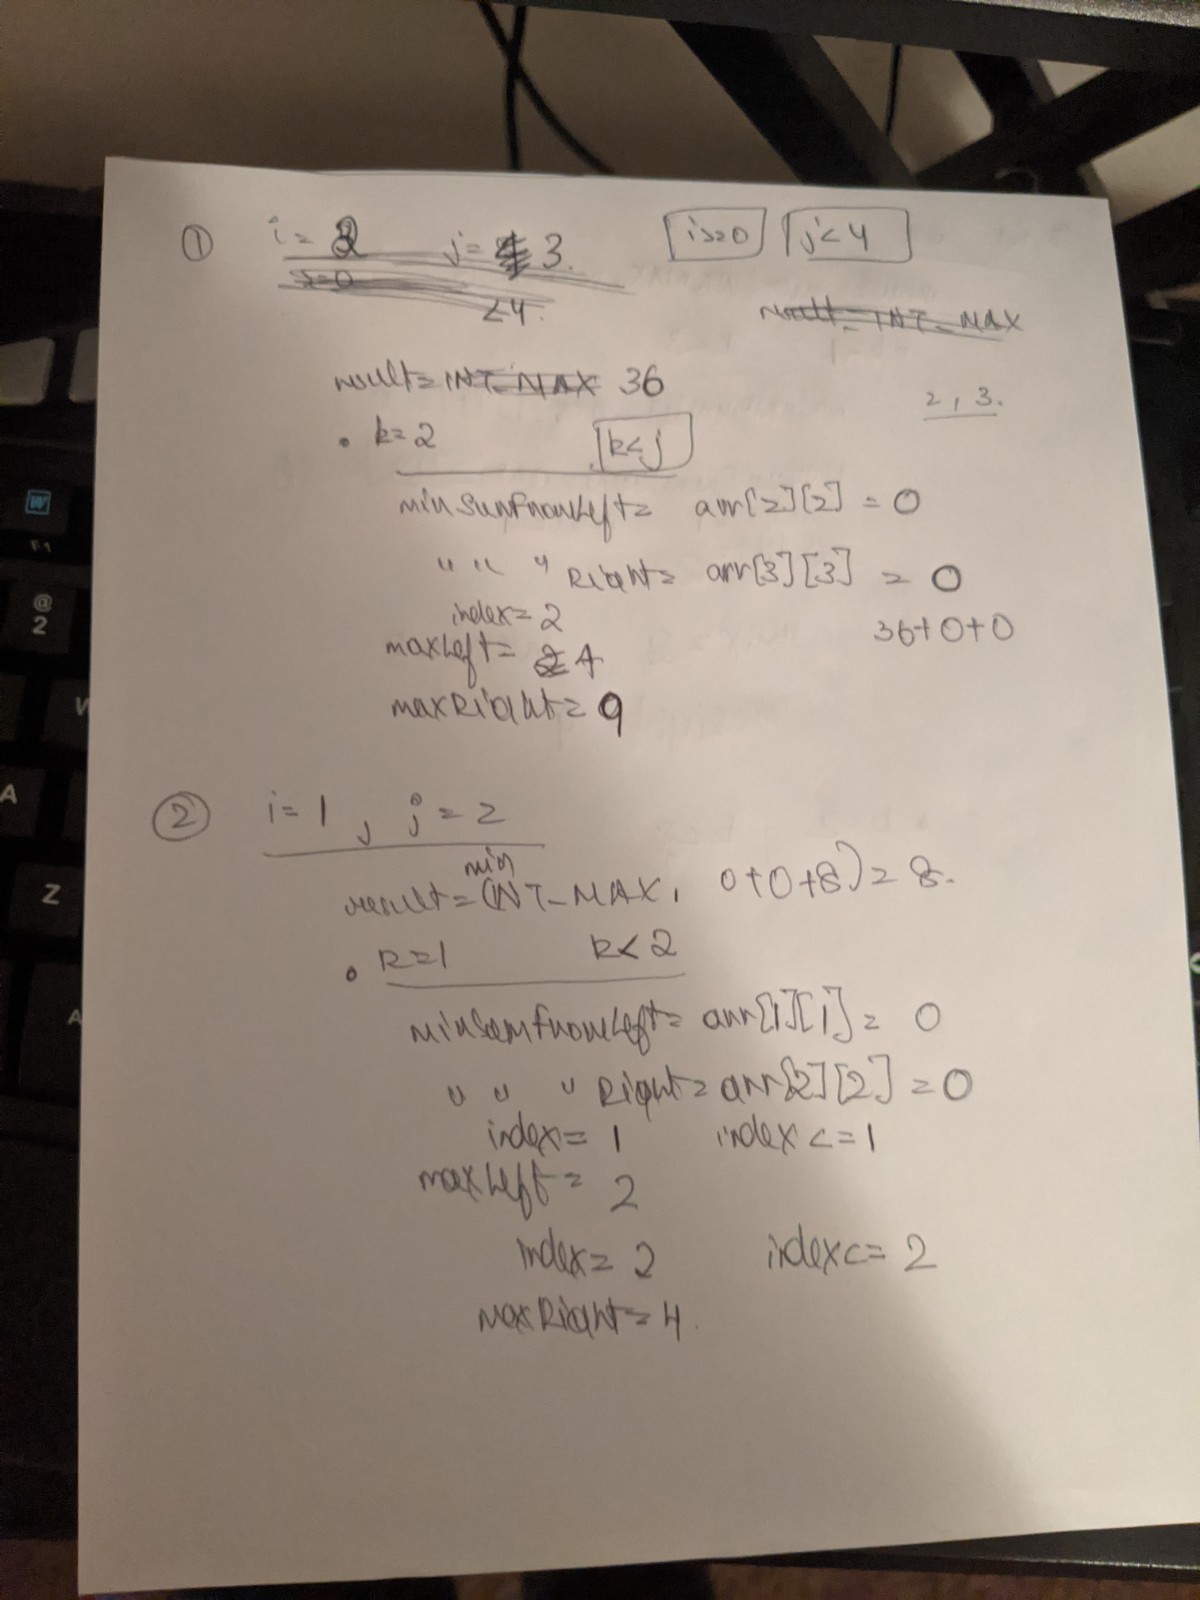 ① i = 2 j = 3. i>=0 j<4
i>=0
<4.
result = INT_MAX
result = INT_MAX 36
2, 3.
• k=2 k<j
minSumFromLeft = arr[2][2] = 0
" " " Right = arr[3][3] = 0
index = 2
36+0+0
maxLeft = 4
maxRight = 9
② i = 1, j = 2
min
result = (INT_MAX, 0+0+8) = 8.
• k=1 k<2
minSumFromLeft = arr[1][1] = 0
" " " Right = arr[2][2] = 0
index = 1 index <= 1
maxLeft = 2
index = 2 index <= 2
maxRight = 4.
W
F1
@
2
W
A
Z
A